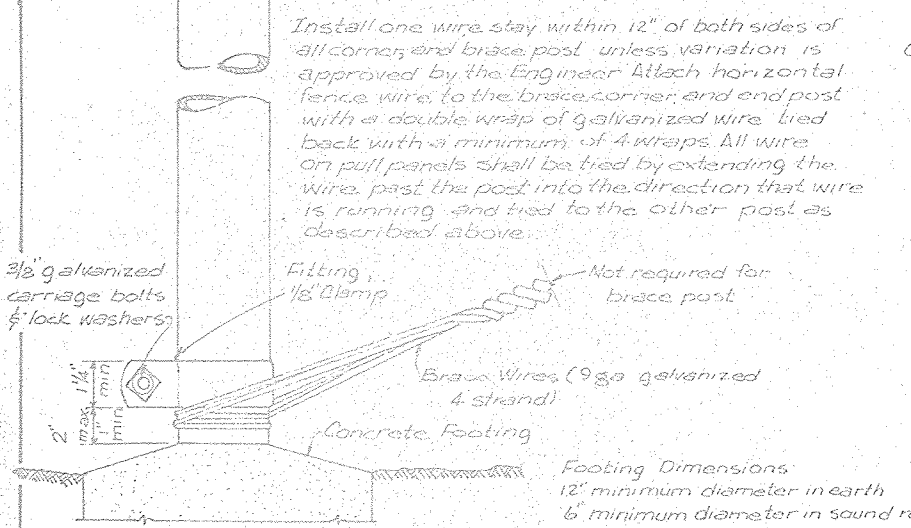 Install one wire stay within 12" of both sides of
all corner, and brace post unless variation is
approved by the Engineer Attach horizontal
fence wire to the brace, corner, and end post
with a double wrap of galvanized wire tied
back with a minimum of 4 wraps. All wire
on pull panels shall be tied by extending the
wire past the post into the direction that wire
is running and tied to the other post as
described above.
3/8" galvanized
carriage bolts
& lock washers
Fitting,
1/8" Clamp
Not required for
brace post
1 1/4"
min
2"
max
1"
min
Brace Wires (9ga galvanized
4 strand)
Concrete Footing
Footing Dimensions
12" minimum diameter in earth
6" minimum diameter in sound